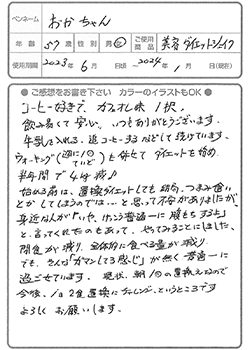 ペンネーム おかちゃん
年齢 57才 性別 男・女 ご使用商品 美容ダイエットシェイク
使用期間 2023年 6月 日頃 ～ 2024年 1月(現在)
● ご感想をお書き下さい カラーのイラストもOK ●
コーヒー好きで、カフェオレ味1択。
飲み易くて安心。いつもありがとうございます。
牛乳を入れる、追コーヒーするなどして続けています。
ウォーキング(週に1回ていど)も併せてダイエットを始め、
半年間で4kg減♪
始める前は、置換ダイエットしても結局、つまみ食い
とかしてしまうのでは…と思って不安がありましたが
身近な人が「いや、けっこう普通に腹もちするよ」
と言ってくれたのもあって、やってみることにしました。
間食が減り、全体的に食べる量が減り、
でも、そんな「ガマンしてる感じ」が無く普通に
過ごせています。現状、朝1回の置換えなので
今後、1日2食置換にチャレンジ、というところです
よろしくお願いします。